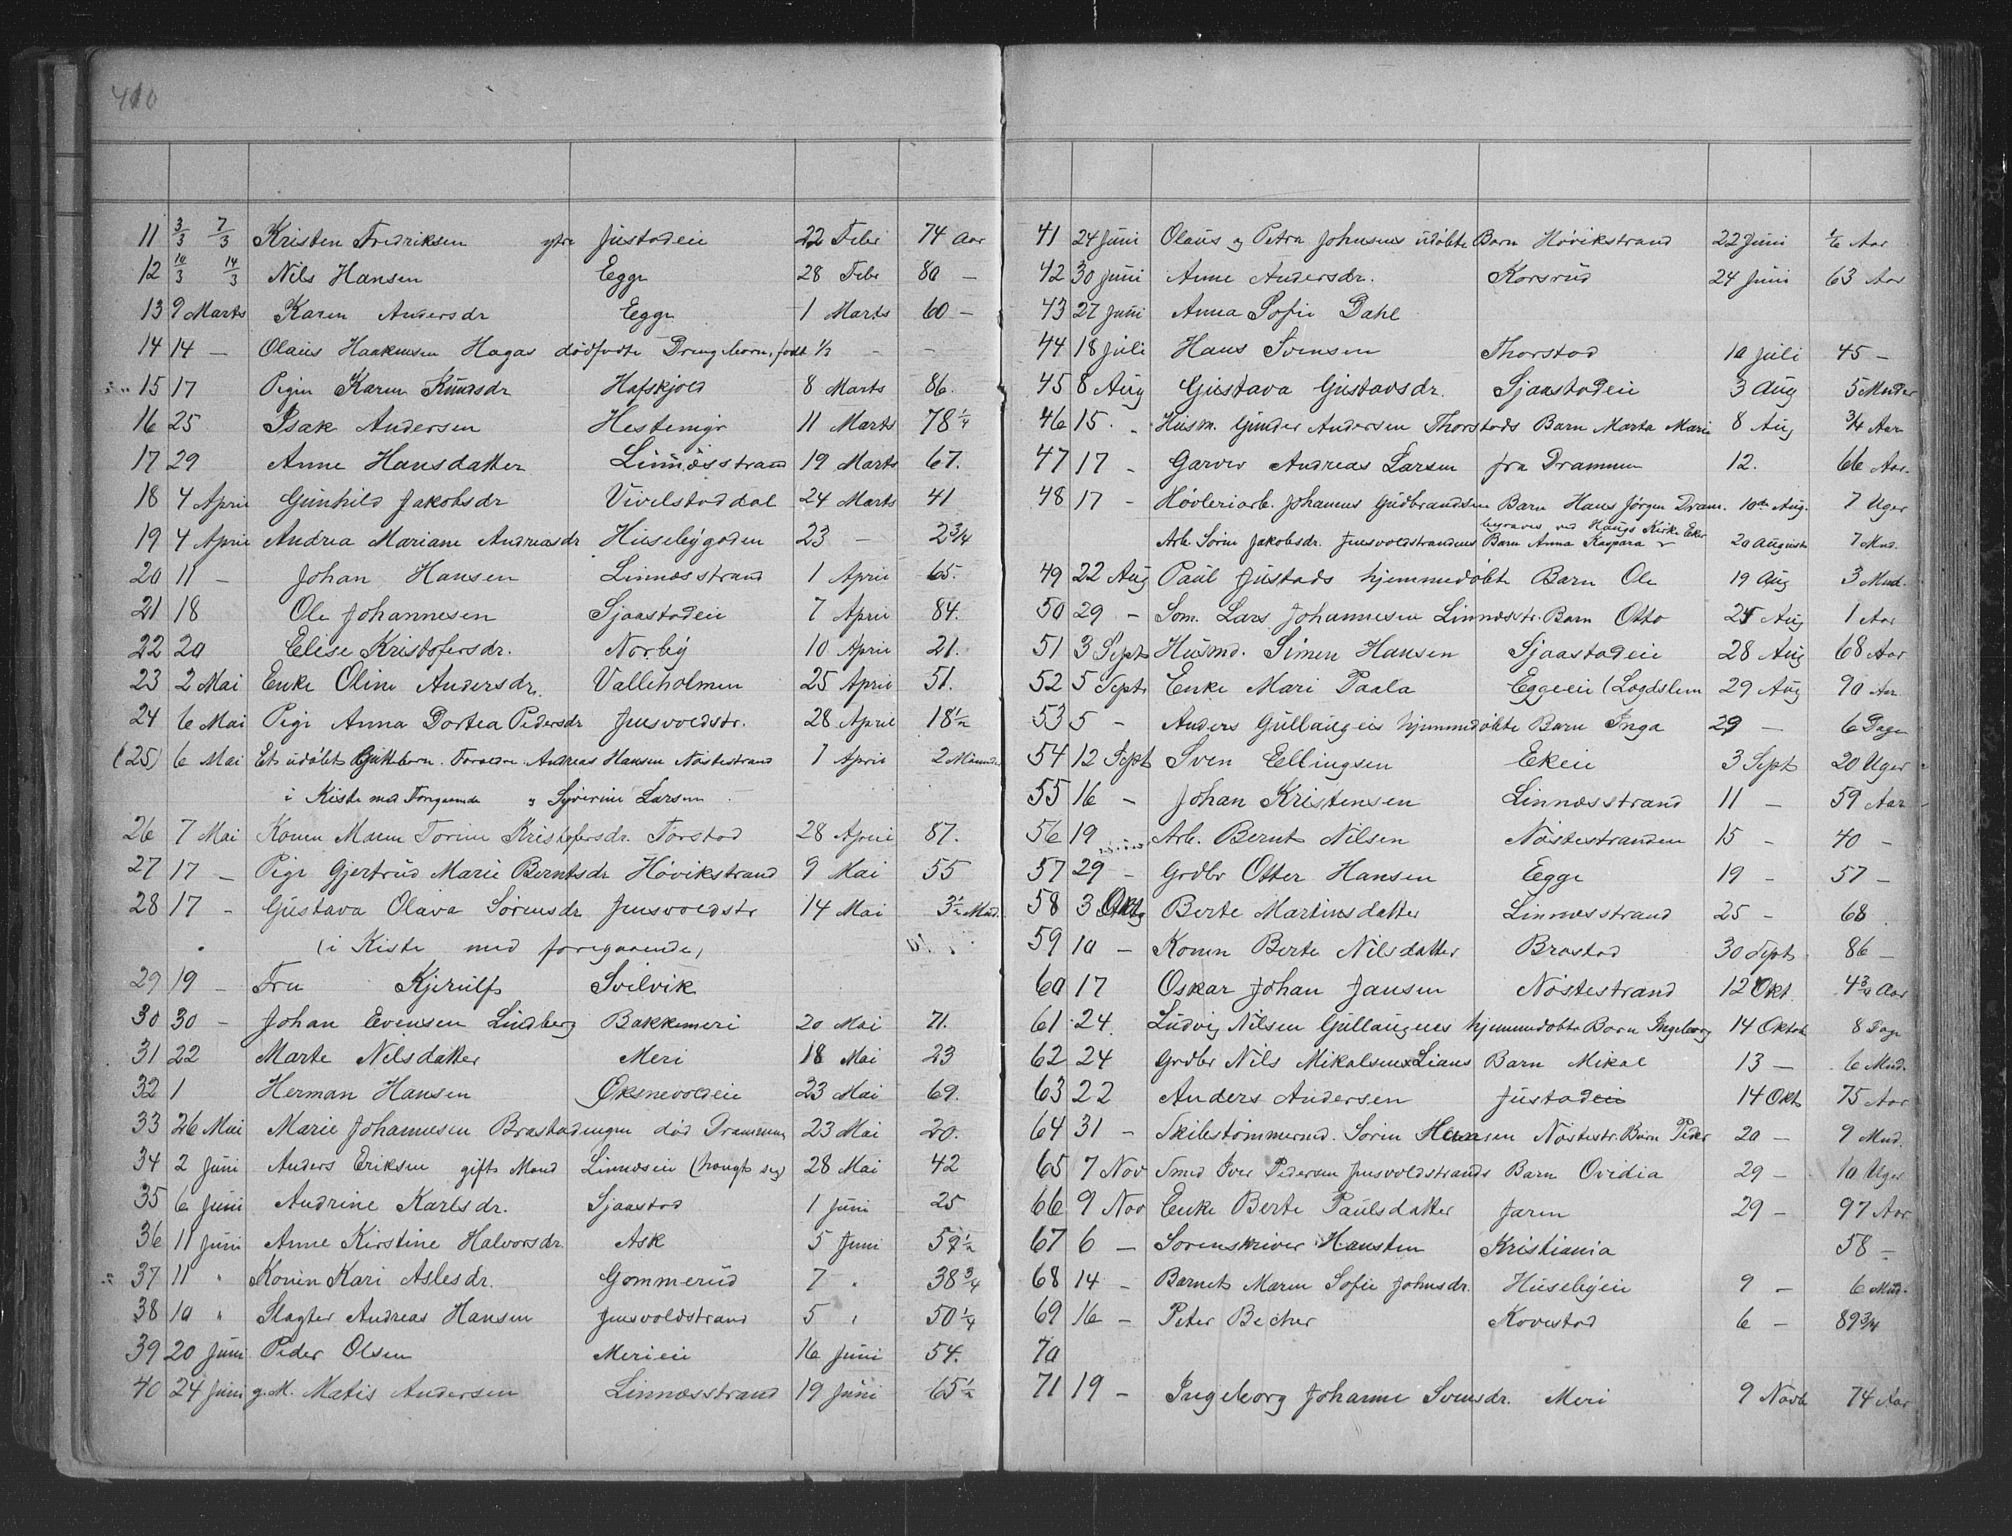 410
11 3/3 7/3 Kristen Fredriksen ytre Justadeie 22 Febr 74 Aar
12 10/3 14/3 Nils Hansen Egge 28 Febr 80 —
13 9 Marts Karen Andersdr Egge 1 Marts 60 —
14 14 — Olaus Haakensen Hagas dødfødte Drengebarn, født 1/3 - -
15 17 Pigen Karen Knudsdr Hafskjold 8 Marts 86.
16 25 Isak Andersen Hestemyr 11 Marts 78 1/4
17 29 Anne Hansdatter Linnæsstrand 19 Marts 67.
18 4 April Gunhild Jakobsdr Vivelstaddal 24 Marts 41
19 4 April Andrea Mariane Andreasdr Husebygaden 23 — 2 3/4
20 11 — Johan Hansen Linnæsstrand 1 April 65.
21 18 Ole Johannesen Sjaastadeie 7 April 84.
22 20 Elise Kristofersdr. Norby 10 April 21.
23 2 Mai Enke Oline Andersdr. Valleholmen 25 April 51.
24 6 Mai Pige Anna Dortea Pedersdr Jensvoldstr. 28 April 18 1/2
(25) 6 Mai Et udøbt Pikebarn. Foreldre. Andreas Hansen Nøstestrand 1 April 2 Maaneder
i Kiste med Foregaaende & Syverine Larsen
26 7 Mai Konen Maren Torine Kristofersdr. Torstad 28 April 87.
27 17 — Pige Gjertrud Marie Berntsdr Høvikstrand 9 Mai 55
28 17 - Gustava Olava Sørensdr Jensvoldstr 14 Mai 3 1/2 Mnd.
(i Kiste med foregaaende)
29 19 — Fru Kjerulf Svelvik
30 30 — Johan Evensen Lindberg Bakkemeri 20 Mai 71.
31 22 Marte Nelsdatter Meri 18 Mai 23
32 1 Herman Hansen Øksnevoldeie 23 Mai 69.
33 26 Mai Marie Johannesen Brastadengen død Drammen 23 Mai 20.
34 2 Juni Anders Eriksen gift Mand Linnæseie (hængt sig) 28 Mai 42
35 6 Juni Andrine Karlsdr. Sjaastad 1 Juni 25
36 11 Juni Anne Kirstine Halvorsdr. Ask 5 Juni 59 1/2
37 11 " Konen Kari Aslesdr. Gommerud 7 " 38 3/4
38 10 " Slagter Andreas Hansen Jensvoldstrand 5 " 50 1/4
39 20 Juni Peder Olsen Merieie 16 Juni 54.
40 24 Juni g.M. Matis Andersen Linnæsstrand 19 Juni 65 1/2
41 24 Juni Olaus og Petra Johnsens udøbte Barn Høvikstrand 22 Juni 1/6 Aar
42 30 Juni Anne Andersdr. Korsrud 24 Juni 63 Aar
43 27 Juni Anna Sofie Dahl
44 18 Juli Hans Svensen Thorstad 10 Juli 45 —
45 8 Aug Gustava Gustavsdr. Sjaastadeie 3 Aug 5 Mnder
46 15. - Husm. Gunder Andersen Thorstads Barn Marta Marie 8 Aug 3/4 Aar
47 17 - Garver Andreas Larsen fra Drammen 12. 66 Aar.
48 17 - Høvleriarb. Johannes Gudbrandsen Barn Hans Jørgen Dram. 10de Aug. 7 Uger
begraves ved Haugs Kirke Eker
Arb. Sørin Jakobsdr. Jensvoldstrandens Barn Anna Kaspara 20 Augusti 7 Mnd.
49 22 Aug Paul Justads hjemmedøbte Barn Ole 19 Aug 3 Mnd.
50 29 - Søm. Lars Johannesen Linnæsstr. Barn Otto 25 Aug 1 Aar
51 3 Sept Husmd. Simen Hansen Sjaastadeie 28 Aug 68 Aar
52 5 Sept Enke Mari Paala Eggeeie (Lagdslem 29 Aug 90 Aar
53 5 - Anders Gullaugeies hjemmedøbte Barn Inga 29 — 6 Dage
54 12 Sept Sven Ellingsen Ekeie 3 Sept 20 Uger
55 16 - Johan Kristensen Linnæsstrand 11 — 59 Aar
56 19 Arb. Bernt Nilsen Nøstestranden 15 - 40 -
57 29 - Grdbr Otter Hansen Egge 19 - 57 —
58 3 Okt Berte Martinsdatter Linnæsstrand 25 - 68
59 10 — Konen Berte Nilsdatter Brastad 30 Sept 86 —
60 17 Oskar Johan Jansen Nøstestrand 12 Okt. 4 3/4 Aar
61 24. Ludvig Nilsen Gullaugeies hjemmedøbte Barn Ingeborg 14 Oktob 8 Dage
62 24 Grdbr Nils Mikalsens Lians Barn Mikal 13 — 6 Mnd.
63 22 Anders Andersen Justadeie 14 Okt 75 Aar
64 31 — Skibstømmermd. Soren Hansen Nøstestr. Barn Peder 20 — 9 Mnd.
65 7 Nov Smed Iver Pedersen Jensvoldstrands Barn Ovidia 29 — 10 Uger
66 9 Nov Enke Berte Paulsdatter Jaren 29 — 97 Aar
67 6 — Sorenskriver Hansten Kristiania 58 —
68 14 - Barnet Maren Sofie Johnsdr. Husebyeie 9 - 6 Mnd.
69 16 - Peter Becher Kovestad 6 — 89 3/4
70
71 19 - Ingeborg Johanne Svensdr. Meri 9 Novb 74 Aar